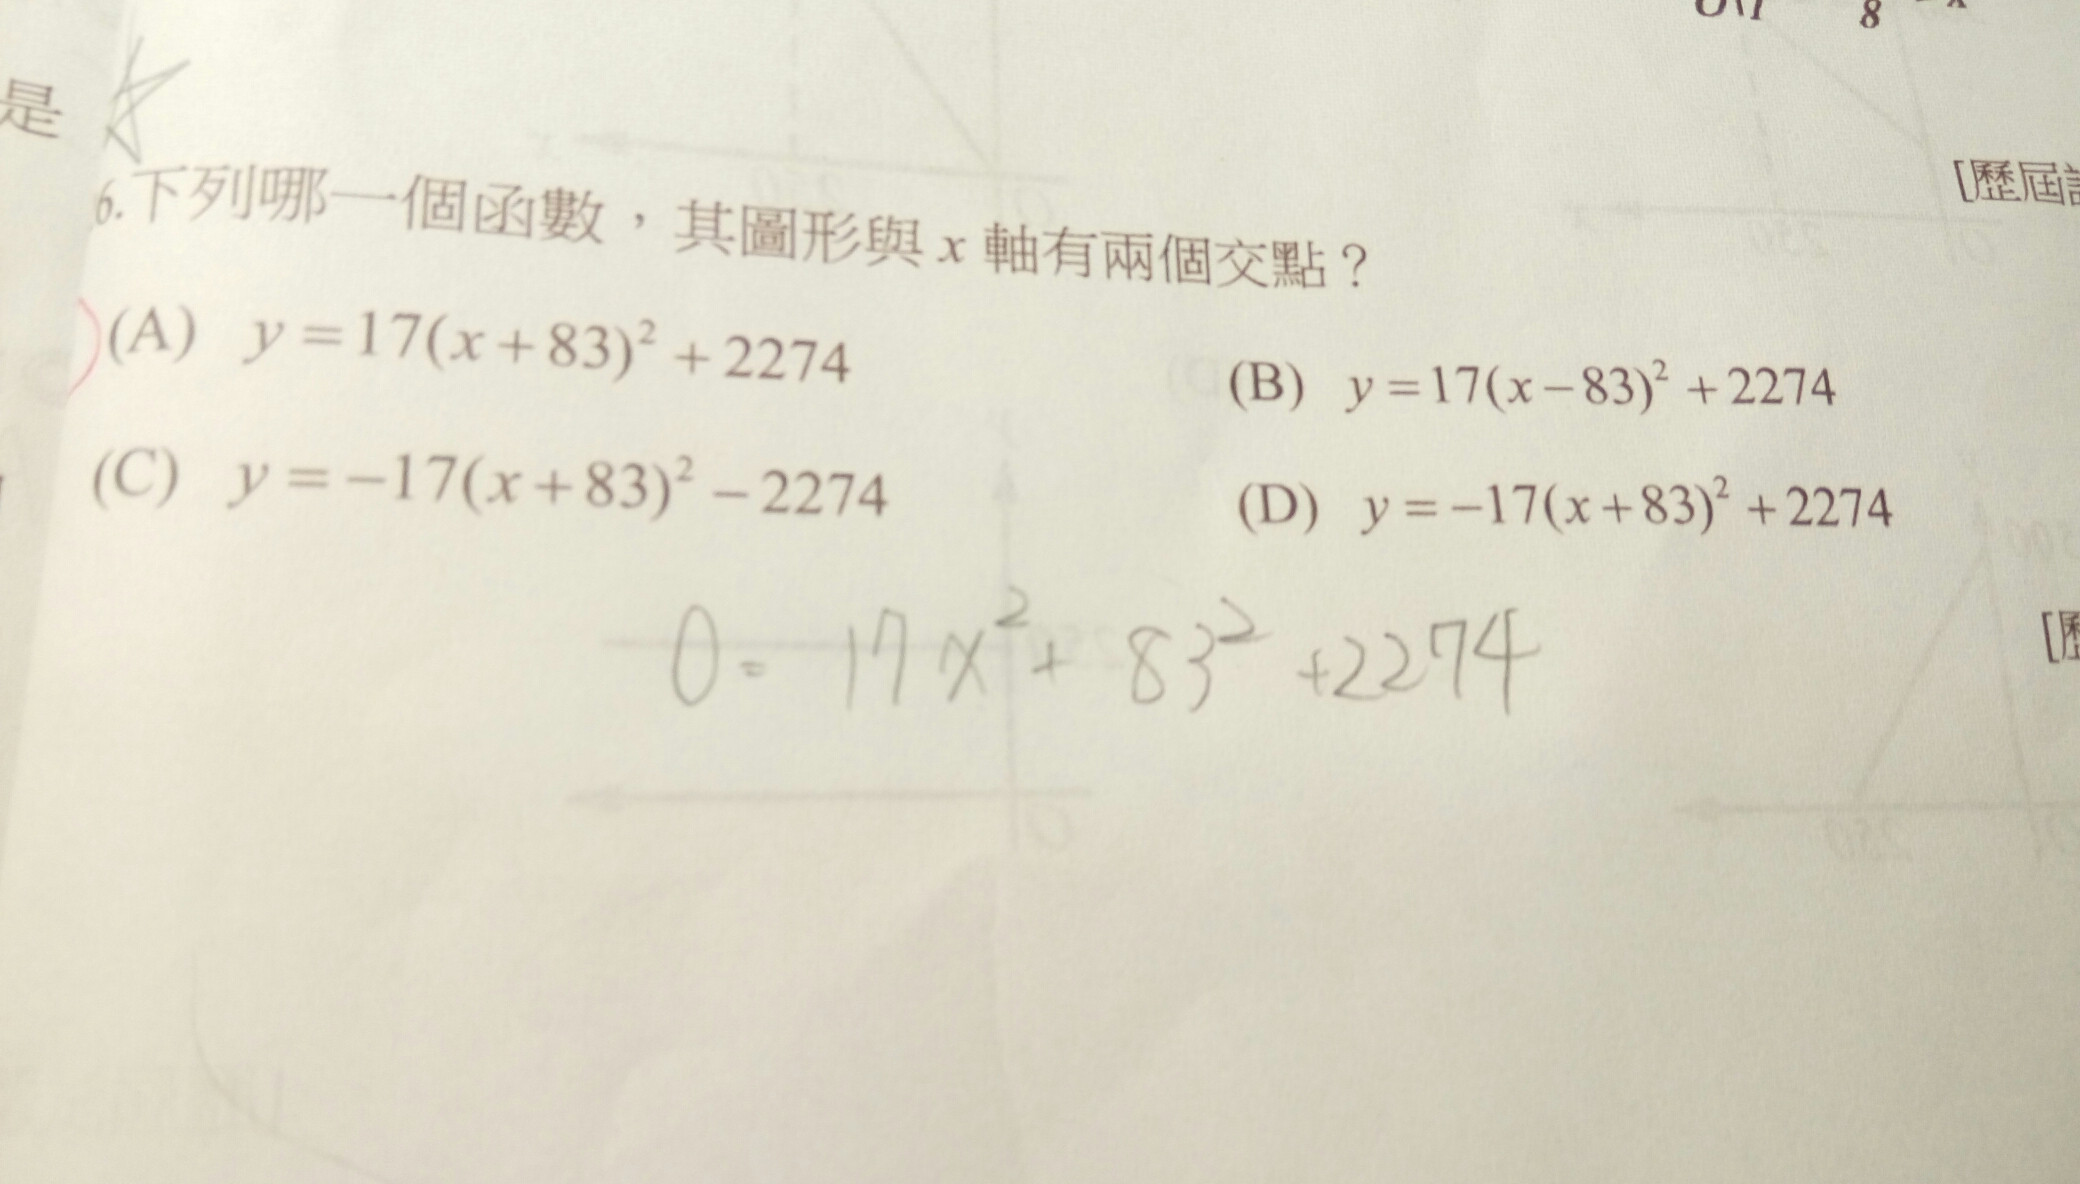 是
[歷屆
6.下列哪一個函數，其圖形與 x 軸有兩個交點？
(A) y=17(x+83)²+2274
(B) y=17(x−83)²+2274
(C) y=−17(x+83)²−2274
(D) y=−17(x+83)²+2274
0= 17x²+ 83² +2274